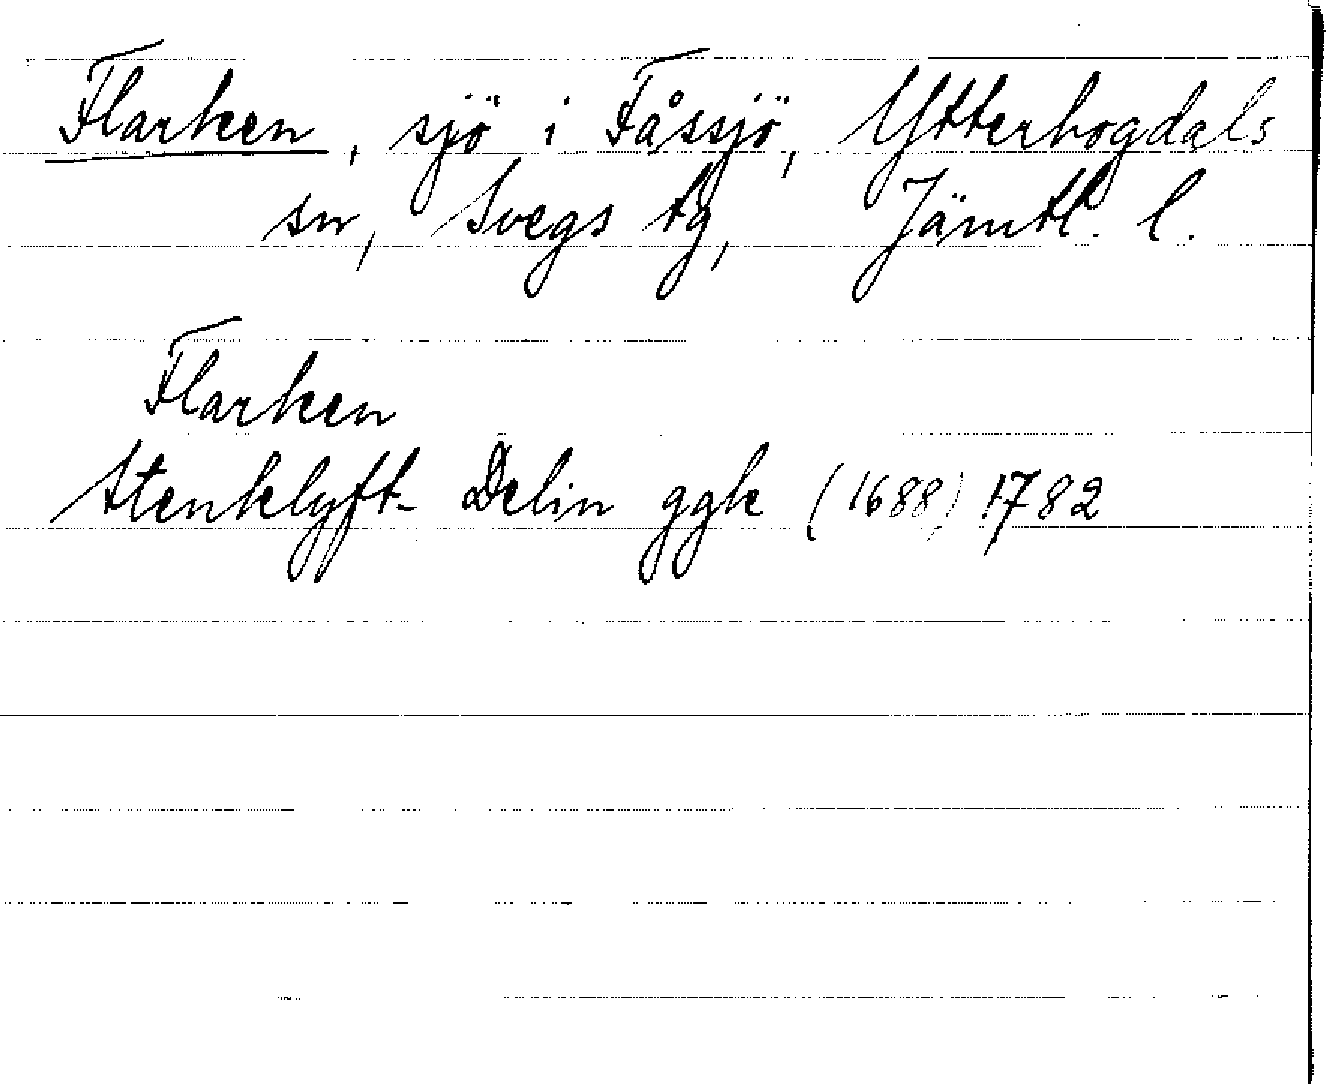 Flarken, sjö i Fåssjö, Ytterhogdals
sn, Svegs tg, Jämtl. l.
Flarken
Stenklyft- Delin ggk (1688) 1782